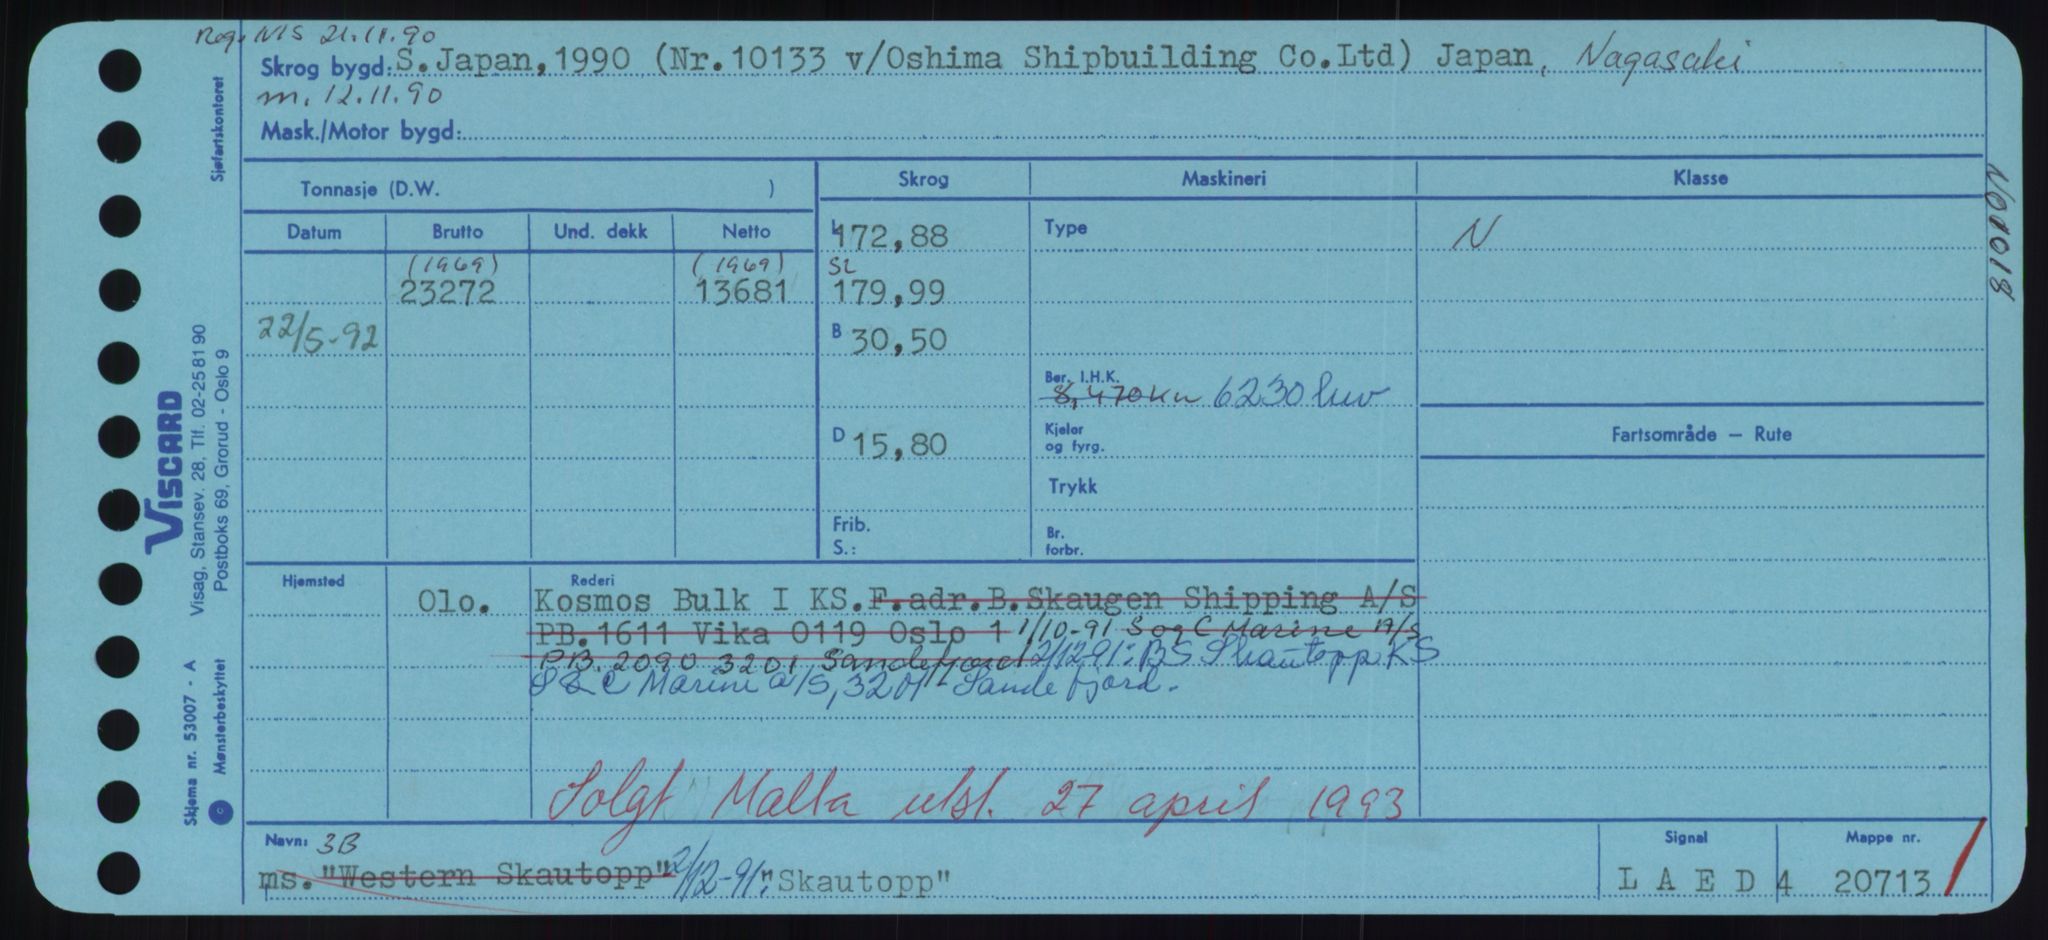 Reg. NIS 21.11.90
Skrog bygd: S.Japan,1990 (Nr.10133 v/Oshima Shipbuilding Co.Ltd) Japan, Nagasaki
m. 12.11.90
Mask./Motor bygd:
Sjøfartskontoret
Tonnasje (D.W. )
Skrog
Maskineri
Klasse
Datum
Brutto
Und. dekk
Netto
L 172,88
Type
N
(1969)
(1969)
SL
23272
13681
179,99
22/5-92
B 30,50
Ber. I.H.K.
8,470Kw 6230 kw
D 15,80
Kjeler
og fyrg.
Fartsområde – Rute
Trykk
Frib.
S.:
Br.
forbr.
N00018
VISCARD
Visag, Stansev. 28, Tlf. 02-25 81 90
Postboks 69, Grorud - Oslo 9
Skjema nr. 53007 - A
Mønsterbeskyttet
Hjemsted
Olo.
Rederi
Kosmos Bulk I KS.F.adr.B.Skaugen Shipping A/S
PB.1611 Vika 0119 Oslo 1 1/10-91 S og C Marine A/S
PB. 2090 3201 Sandefjord 2/12-91: BS Skautopp KS
S & C Marine a/S, 3201 - Sandefjord.
Solgt Malta utsl. 27 april 1993
Navn: 3B
ms."Western Skautopp" 2/12-91: "Skautopp"
Signal
L A E D 4
Mappe nr.
20713